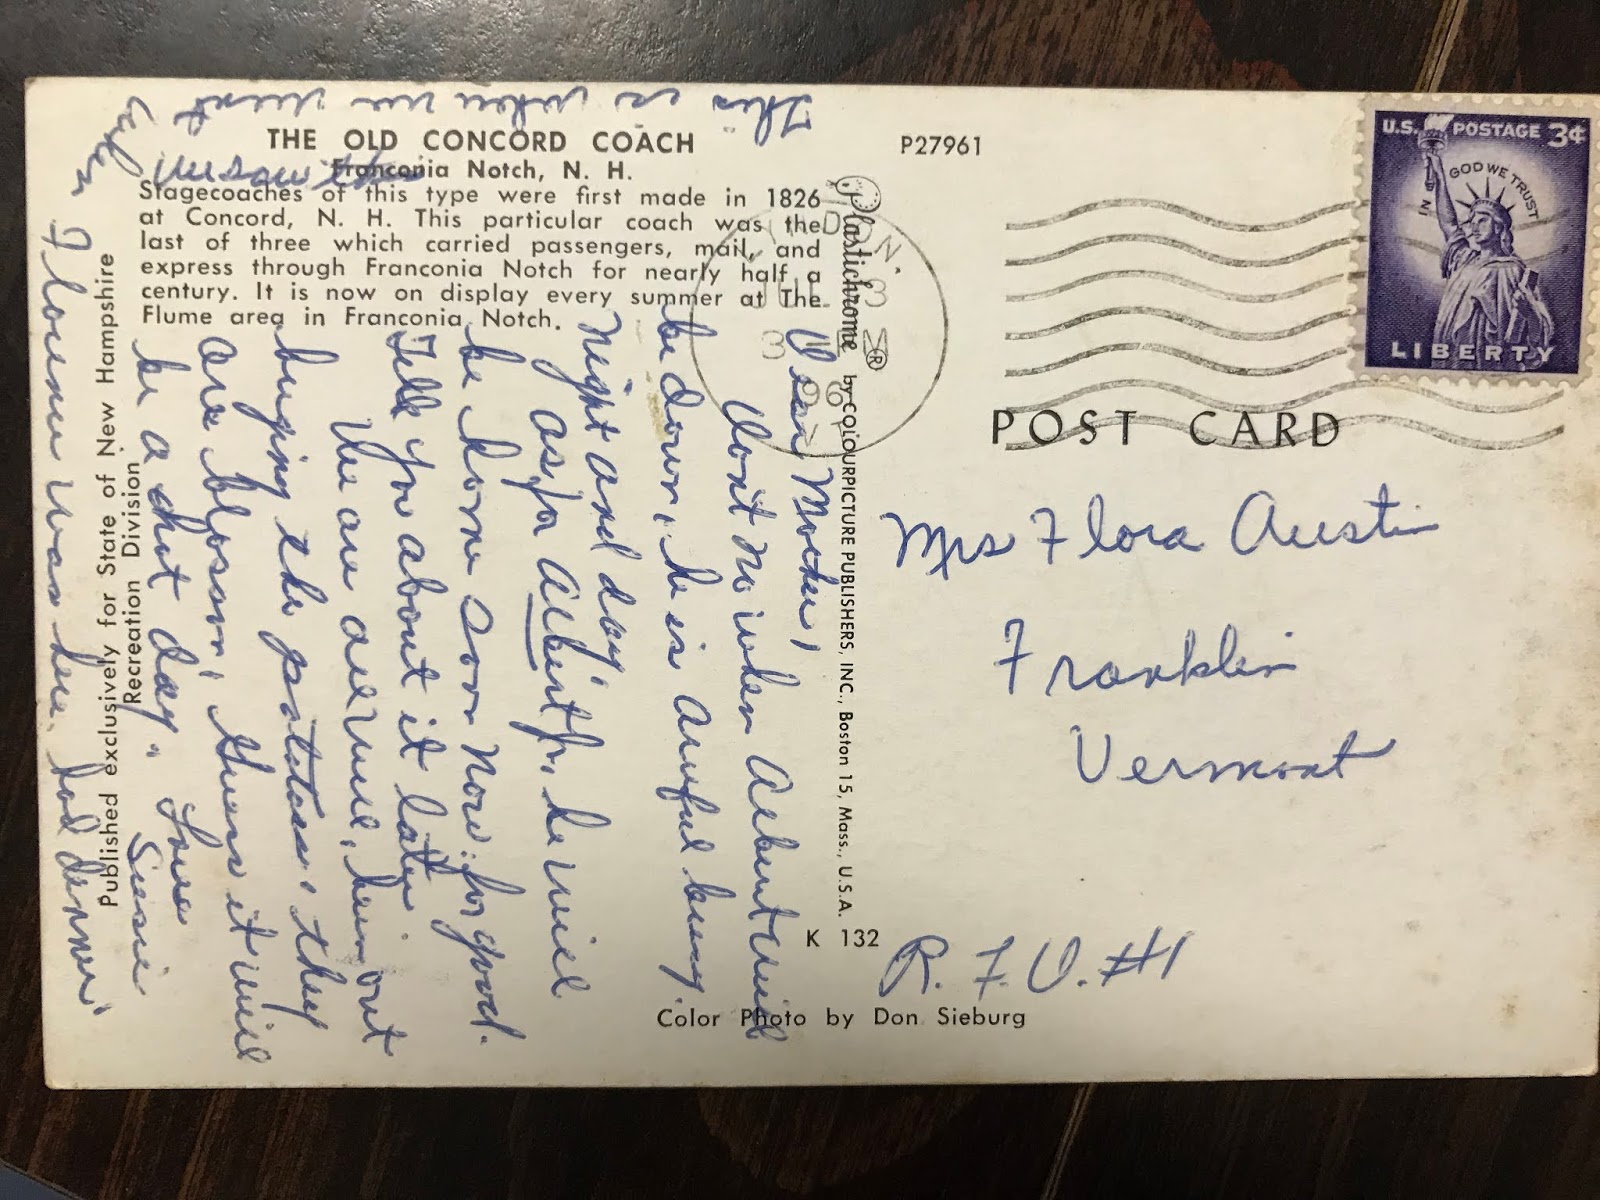 THE OLD CONCORD COACH
Franconia Notch, N. H.
Stagecoaches of this type were first made in 1826
at Concord, N. H. This particular coach was the
last of three which carried passengers, mail, and
express through Franconia Notch for nearly half a
century. It is now on display every summer at The
Flume area in Franconia Notch.
P27961
U.S. POSTAGE 3¢
IN GOD WE TRUST
LIBERTY
POST CARD
Mrs Flora Austin
Franklin
Vermont
R. F. D. #1
Plastichrome ® by COLOURPICTURE PUBLISHERS, INC., Boston 15, Mass., U.S.A.
K 132
Color Photo by Don Sieburg
Published exclusively for State of New Hampshire
Recreation Division
Dear Mother,
Dont no when Albert will
be down, he is awful busy
night and day,
as for Albert Jr, he will
be home soon now for good.
Tell you about it later
We are all well, been out
buging the potatoes, they
are blosom, guess it will
be a hot day.
Love
Susie
This is where we went
when Florence was here. had dinner